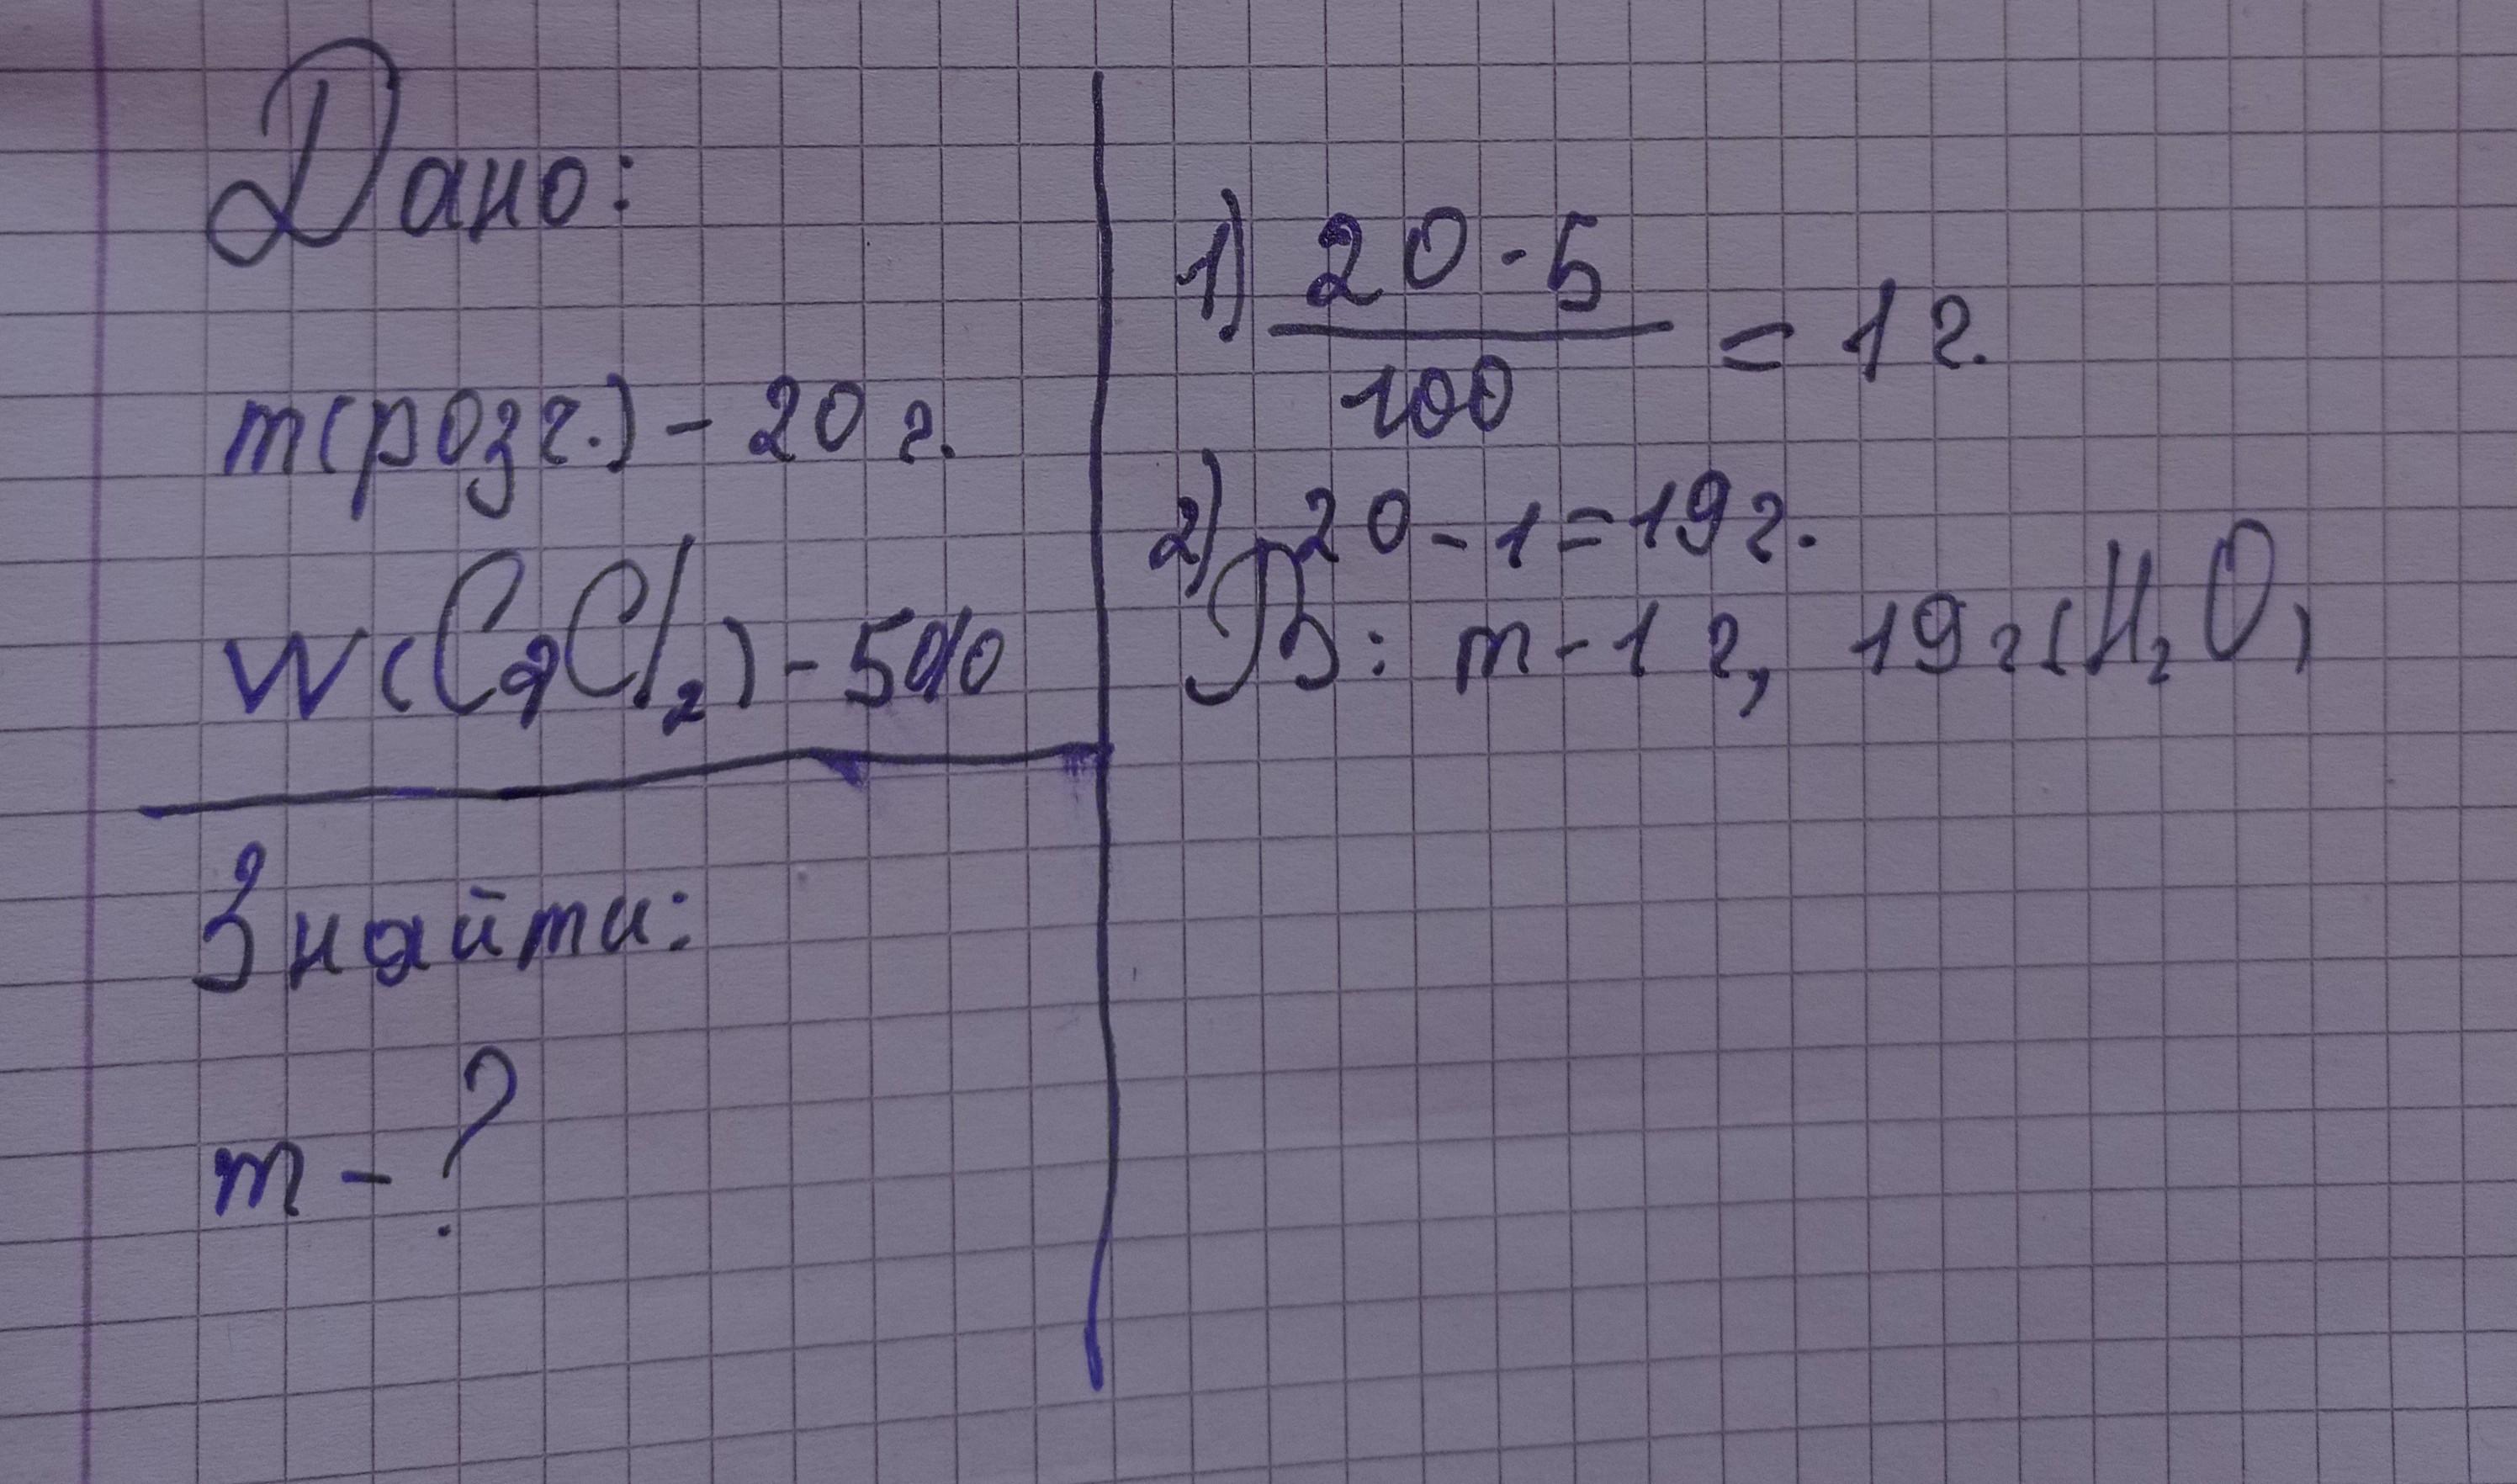 Дано:
m(розг.) - 20 г.
W(CaCl₂) - 5%
Знайти:
m - ?
1) 20 · 5 / 100 = 1 г.
2) 20 - 1 = 19 г.
В: m - 1 г, 19 г (H₂O)